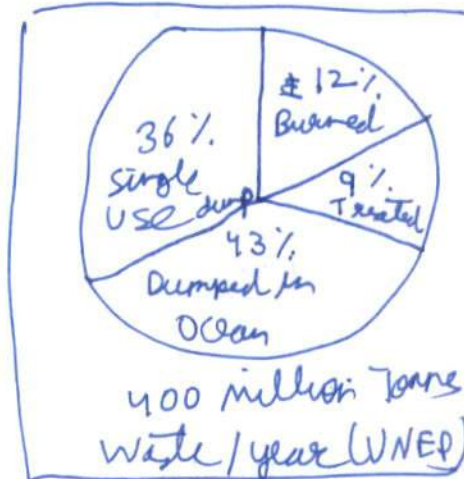 36%
Single
use dump
12%
Burned
9%
Treated
43%
Dumped in
Ocean
400 million Tonns
Waste/year (UNEP)